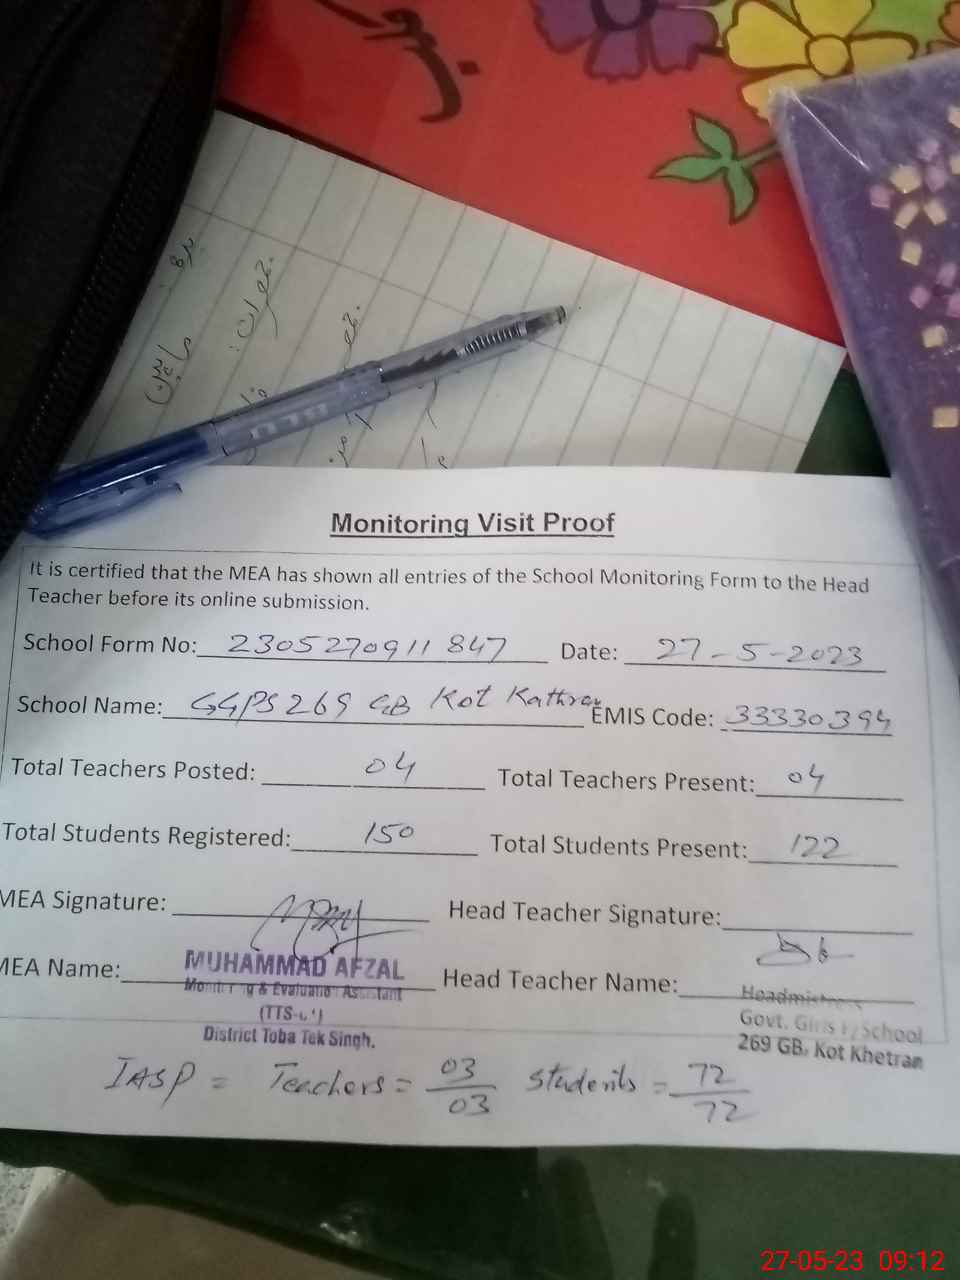 Monitoring Visit Proof
It is certified that the MEA has shown all entries of the School Monitoring Form to the Head
Teacher before its online submission.
School Form No: 2305270911847 Date: 27-5-2023
School Name: GGPS 269 GB Kot Kathran EMIS Code: 33330394
Total Teachers Posted: 04 Total Teachers Present: 04
Total Students Registered: 150 Total Students Present: 122
MEA Signature: Head Teacher Signature:
MEA Name: MUHAMMAD AFZAL Head Teacher Name:
Monitoring & Evaluation Assistant
(TTS-
District Toba Tek Singh.
Headmistress
Govt. Girls P/School
269 GB, Kot Khetran
IASP = Teachers = 03/03 Students = 72/72
27-05-23 09:12